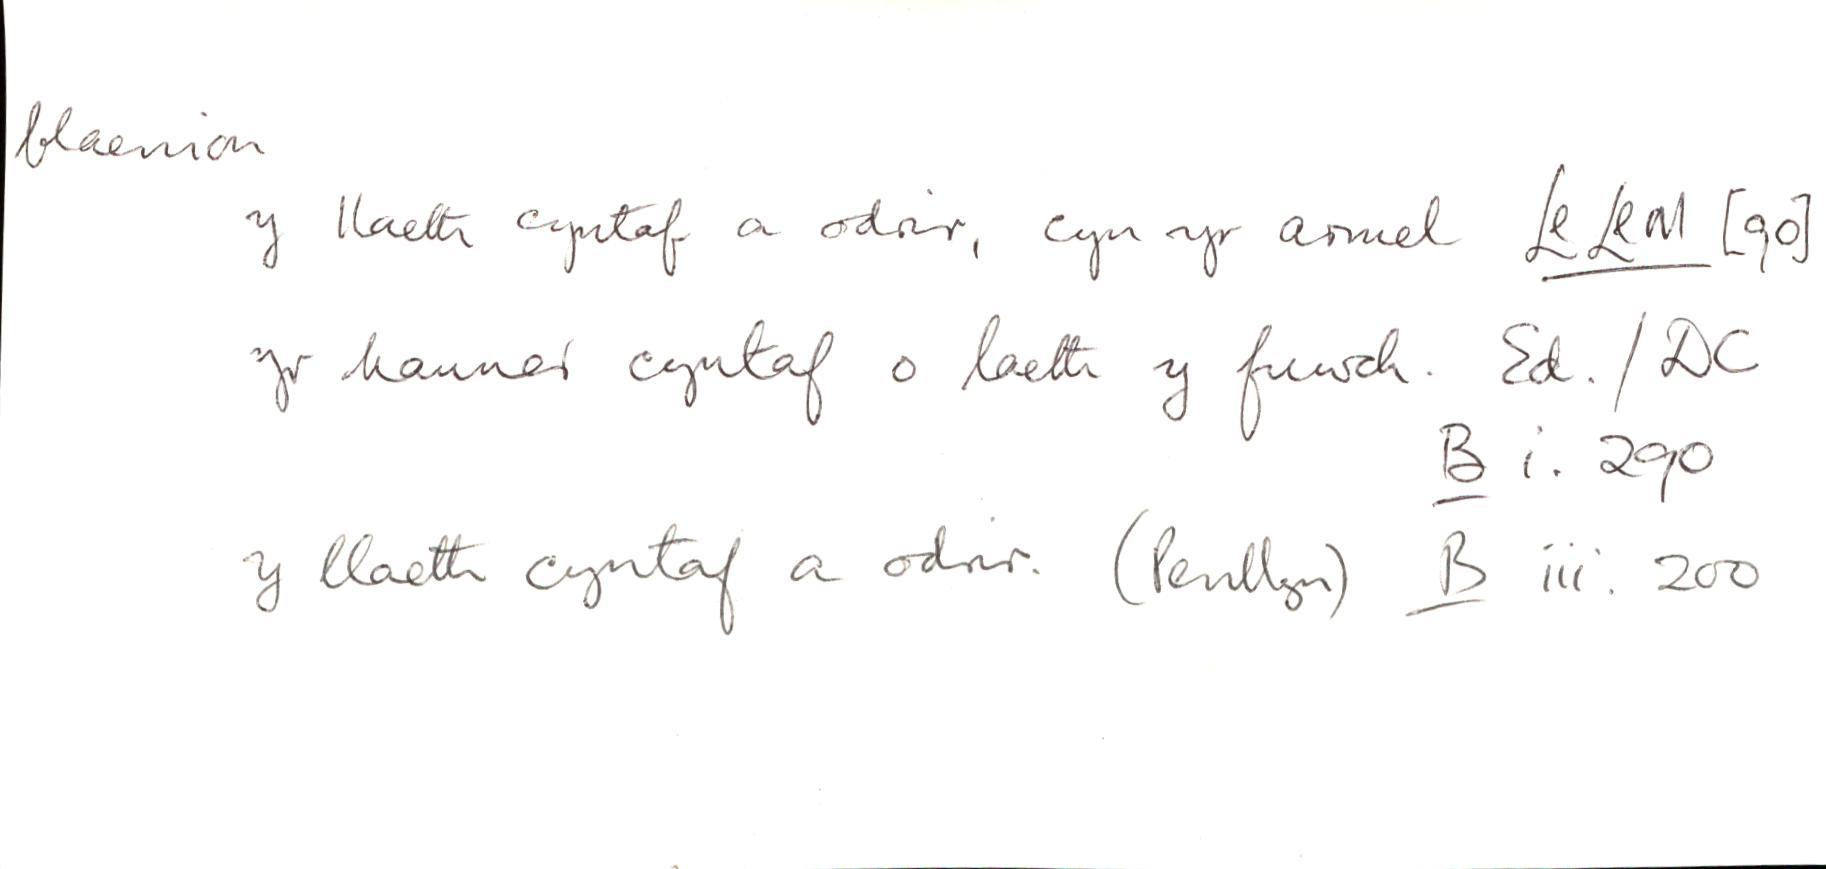 blaenion
y llaeth cyntaf a odrir, cyn yr armel LlLlM [90]
yr hanner cyntaf o laeth y fuwch. Ed. / DC
B i. 290
y llaeth cyntaf a odrir. (Penllyn) B iii. 200